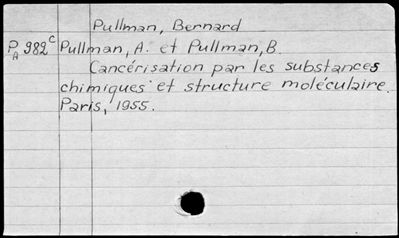 Pullman, Bernard
PA 982c Pullman, A. et Pullman, B.
Cancérisation par les substances
chimiques et structure moléculaire.
Paris, 1955.